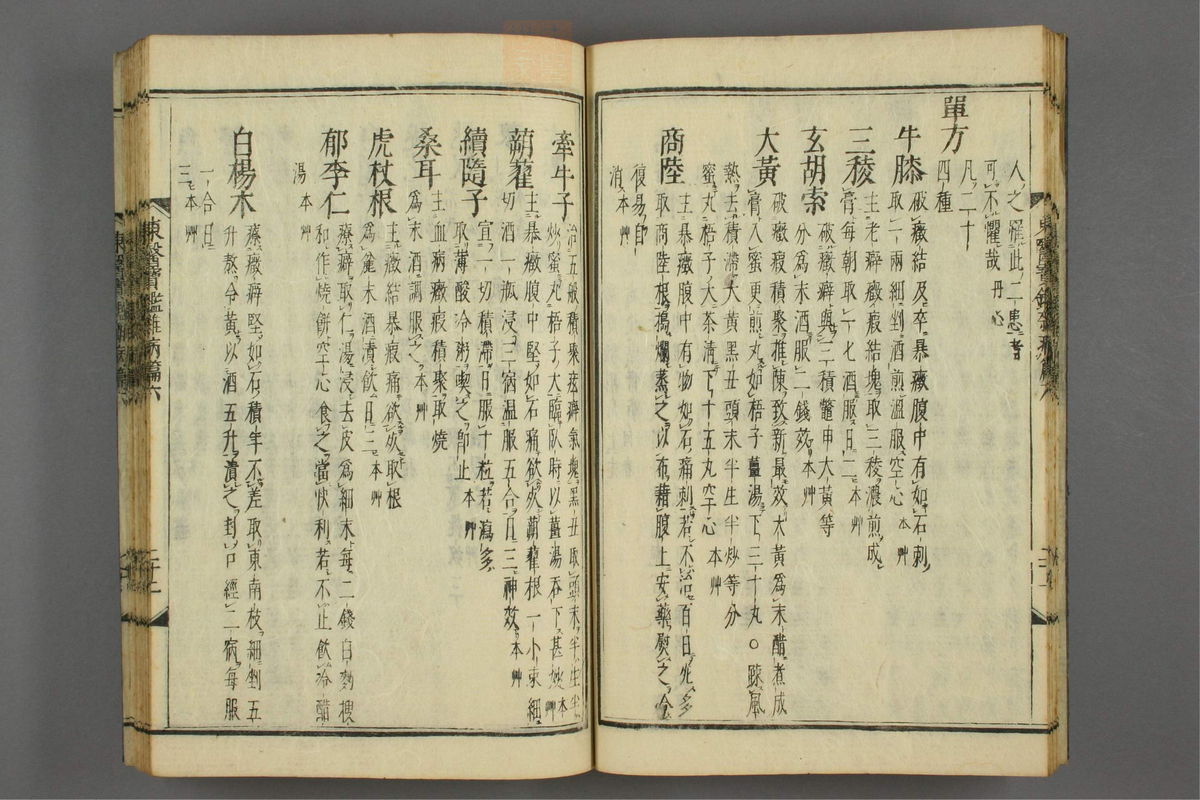 人之罹此二患者
可不懼哉 丹心
單方
凡二十
四種
牛膝 破癥結及卒暴癥腹中有如石刺
取二兩細剉酒煎溫服空心 本艸
三稜 主老癖癥瘕結塊取三稜濃煎成
膏每朝取一匕酒服日二 本艸
玄胡索 破癥癖與三稜鼈甲大黃等
分爲末酒服二錢效 本艸
大黃 破癥瘕積聚推陳致新最效大黃爲末醋煮成
膏入蜜更煎丸如梧子薑湯下三十丸○踈風
熱去積滯大黃黑丑頭末半生半炒等分
蜜丸梧子大茶清下十五丸空心 本艸
商陸 主暴癥腹中有物如石痛刺若不治百日死多
取商陸根搗爛蒸之以布藉腹上安藥熨之令
復易自
消 本艸
牽牛子 治五般積聚痃癖氣塊黑丑取頭末半生半
炒蜜丸梧子大臨臥時以薑湯吞下甚妙 本艸
蒴藋 主暴癥腹中堅如石痛欲死蒴藋根一小束細
切酒一瓶浸三宿溫服五合日三神效 本艸
續隨子 宜一切積滯日服十粒若瀉多
取薄酸冷粥喫之卽止 本艸
桑耳 主血病癥瘕積聚取燒
爲末酒調服之 本艸
虎杖根 主癥結暴瘕痛欲死取根
爲麄末酒漬飮日三 本艸
郁李仁 療癖取仁湯浸去皮爲細末每二錢白麪搜
和作燒餠空心食之當快利若不止飮冷醋
湯 本艸
白楊木 療癥癖堅如石積年不差取東南枝細剉五
升熬令黃以酒五升漬之封口經二宿每服
一合日
三 本艸
東醫寶鑑雜病篇六
東醫寶鑑雜病篇六